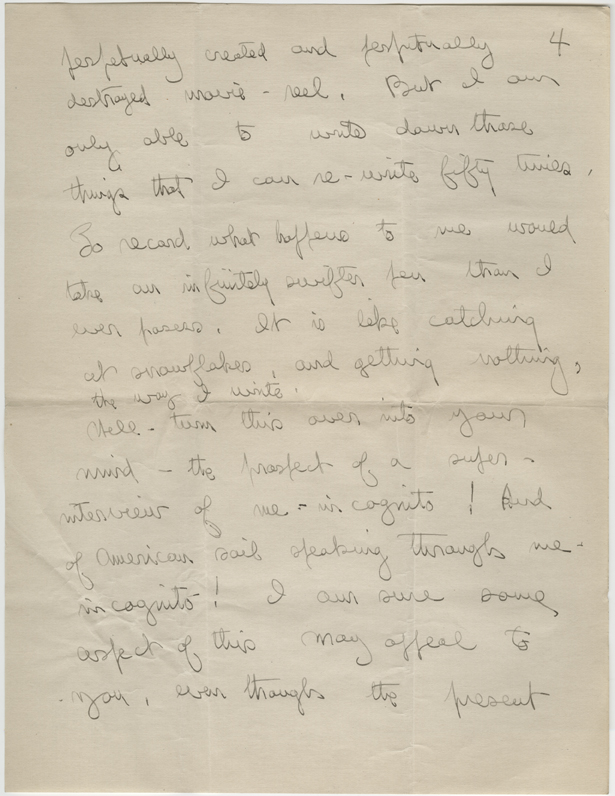 4
perpetually created and perpetually
destroyed movie-reel. But I am
only able to write down those
things that I can re-write fifty times.
To record what happens to me would
take an infinitely swifter pen than I
ever possess. It is like catching
at snowflakes, and getting nothing,
the way I write.
Well - turn this over into your
mind - the prospect of a super-
interview of me - incognito! And
of American soil speaking through me -
incognito! I am sure some
aspect of this may appeal to
you, even though the present